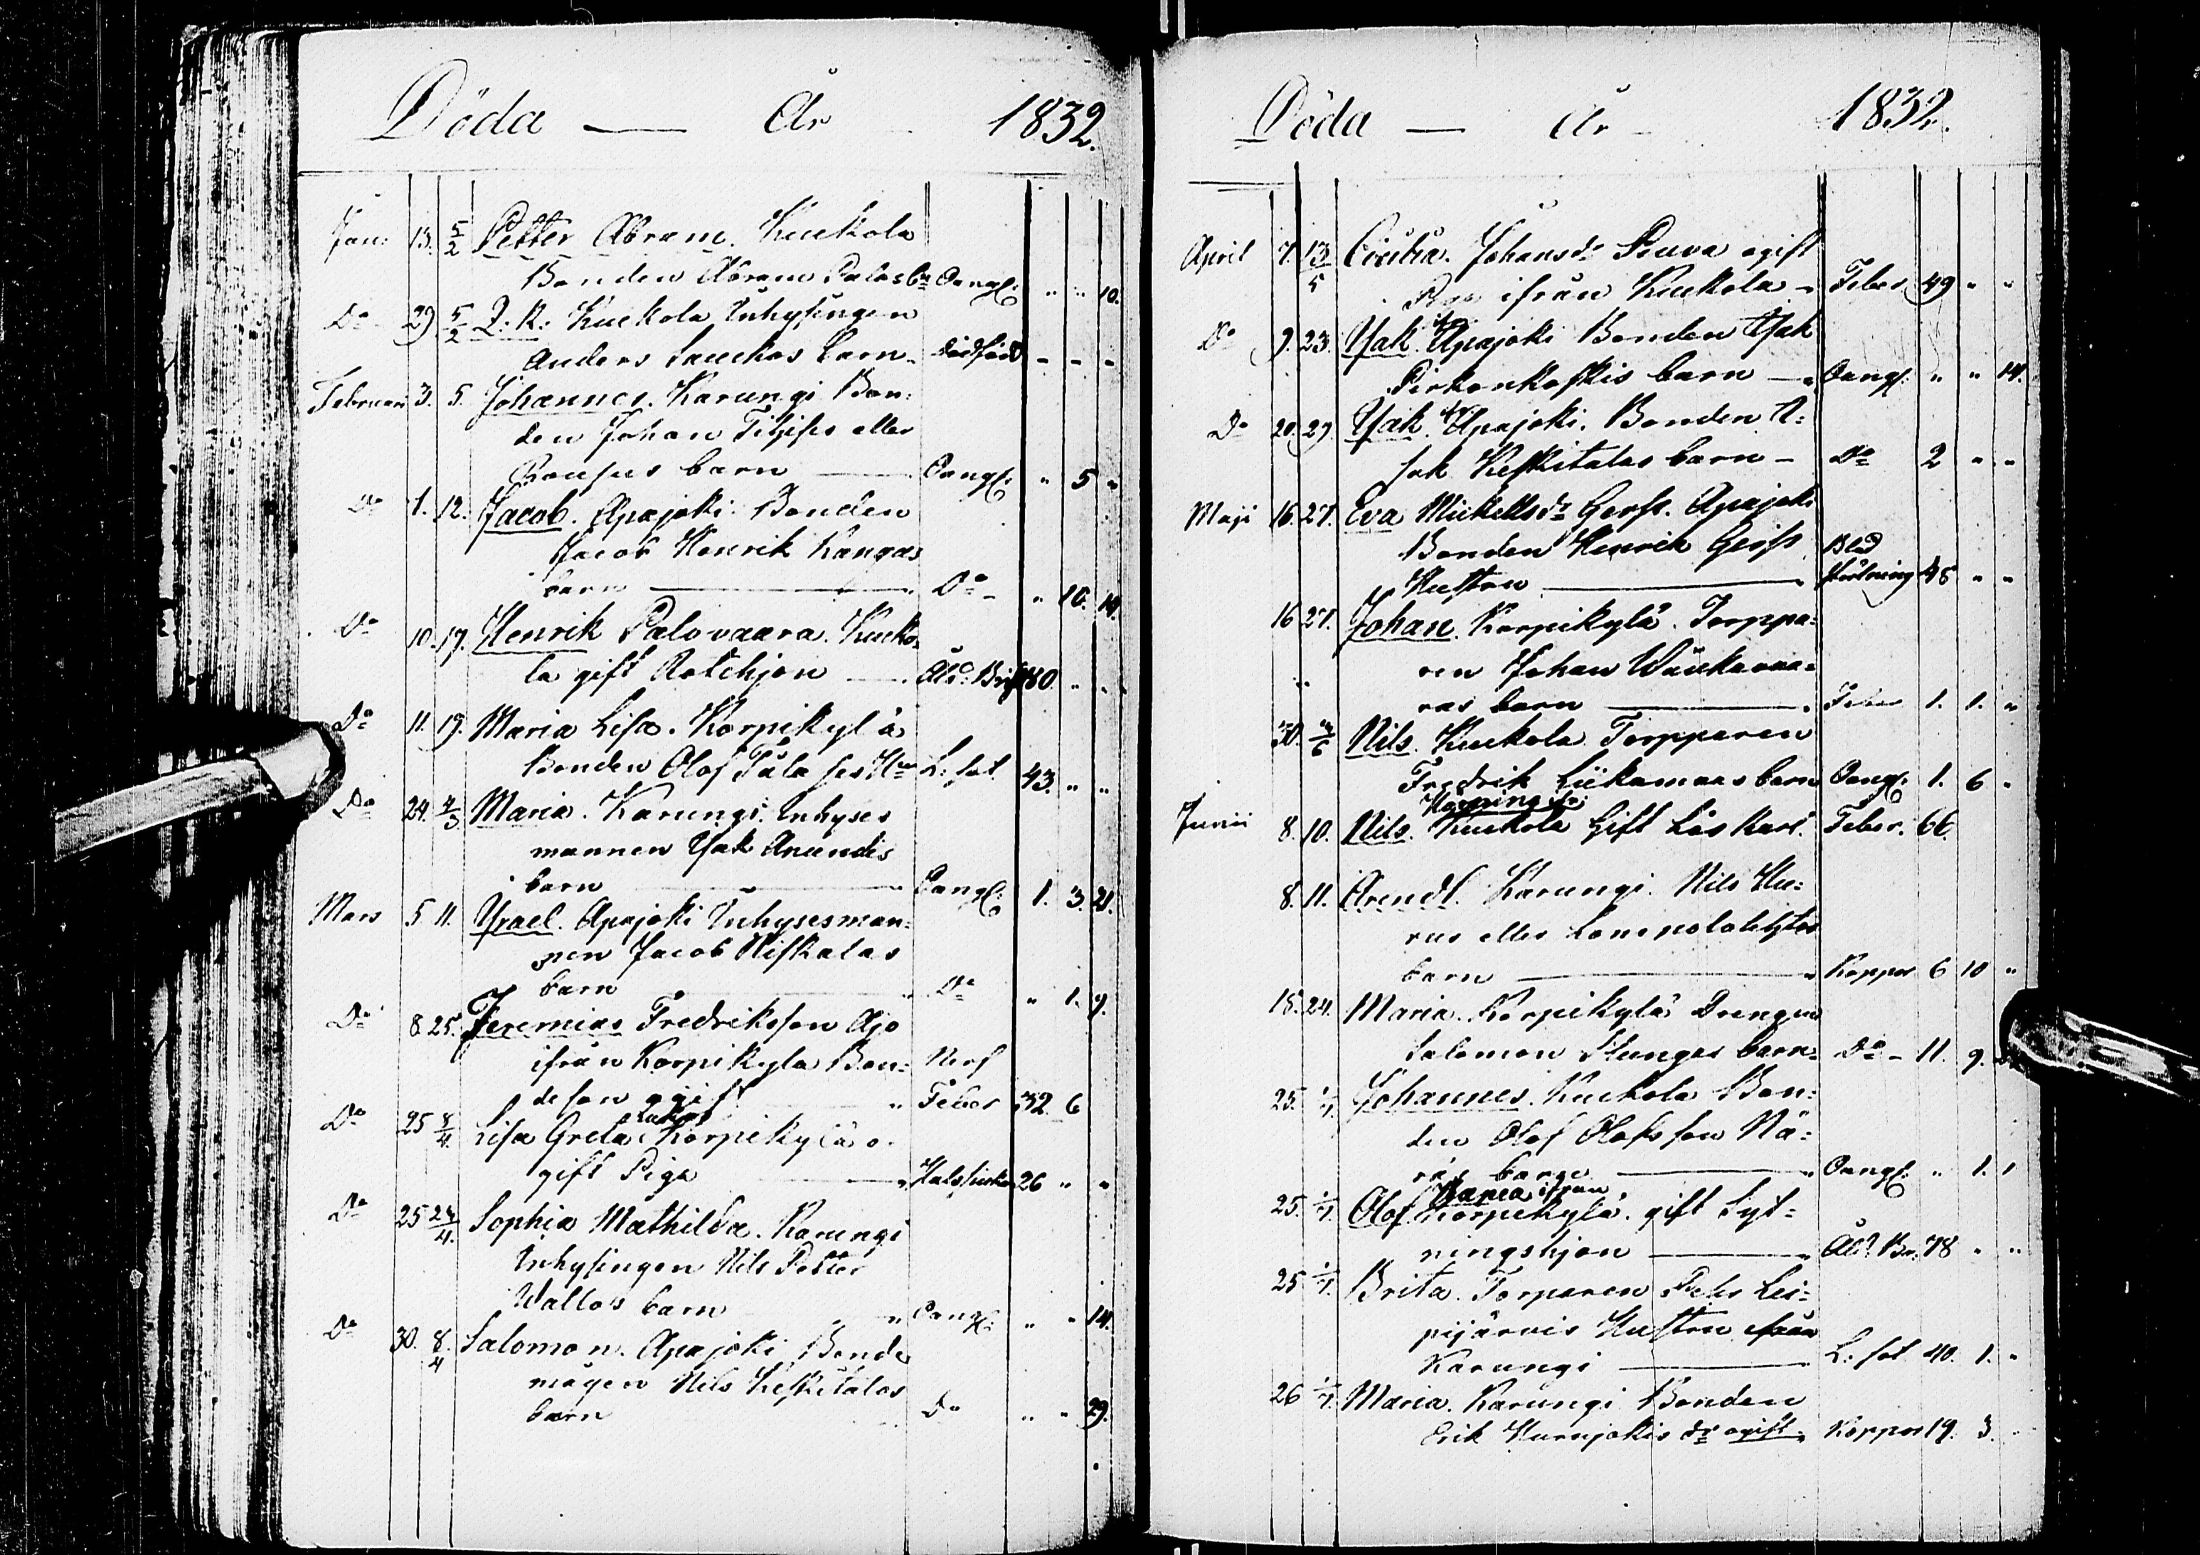 Döda — År 1832.
Jan: 13. 5/2 Petter Abram. Kuckola
Bonden Abram Palos bn Oangf: " " 10.
Do 29 5/2 Q: K: Kuckola Inhysingen
Anders Lauckos barn - dödfödd - - -
Februari 3. 5. Johannes. Karungi Bon:
den Johan eller
barn — Oangf: " 5 "
Do 7. 12. Jacob. Apajoki Bonden
Jacob Henrik Kangas
barn — Do - " 10. 14.
Do 10. 17. Henrik Palovaara. Kucko-
la gift Rotehjon — Åld: Br 80. " "
Do 11. 19. Maria Lisa. Korpikylä
Bonden Olof Hu L: sot 43. " "
Do 24. 4/3 Maria. Karungi. Inhyses
mannen Isak Anundis
barn — Oangf: 1. 3. 21.
Mars 5 11. Israel. Apajoki Inhysesman-
nen Jacob Niskalas
barn " Do " 1. 9.
Do 8. 25. Jeremias Fredriksson Ajo
ifrån Korpikyla Bon: Nerf
deson ogift " Feber 32 6
Do 25 8/4 Lisa Greta Korpikylä o-
gift Piga — 26 " "
Do 25 24/4. Sophia Mathilda. Karungi
Inhysingen Nils Petter
Wallos barn " Oangf: " " 14.
Do 30. 8/4 Salomon. Apajoki Bonde
mågen Nils Keskitalos
barn Do " " 29.
Döda — År — 1832.
April 7. 13/5 Cicilia. Johansdr Ruva ogift
Piga ifrån Kuckola - Feber 49 " "
Do 9. 23. Isak Apajoki Bonden Isak
Pirkonkoskis barn — Oangf: " " 14.
Do 20. 29. Isak Apajoki. Bonden I-
sak Keskitalos barn - Do 2 " "
Maji 16. 27. Eva Mickelsdr Gerss. Apajoki
Bonden Henrik Gerss Blod
Hustru — störtning 45 " "
16 27. Johan. Korpikylä. Torppa-
ren Johan
ras barn — Feber 1. 1. "
30. Nils. Kuckola Torpparen
Fredrik Liikamaas barn Oangf: 1. 6 "
Junii 8. 10. Nils. Kuckola Gift Löskarl. Feber. 66.
8. 11. Arendt. Karungi. Nils Hu-
rus eller
barn — Koppor 6 10 "
15. 24. Maria. Korpikylä Drengen
Salomon Stunges barn: Do - 11. 9.
25. Johannes. Kuckola Bon-
den Olof Olofsson Nä-
räs barn — Oangf: " 1. 1
ifrån
25. Olof Korpikylä. gift Syt-
ningshjon — Åld: Br. 78 " "
25 Brita. Torparen Pehr Lei-
pijärvis Hustru ifrån
Karungi — L: sot 40. 1. "
26 Maria. Karungi Bonden
Erik Kurujokis dr ogift Koppor 19. 3.